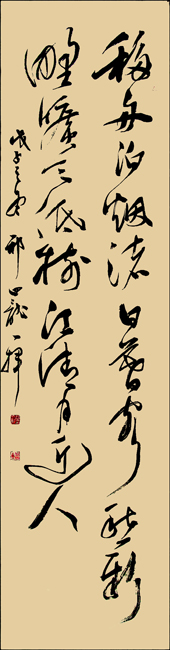 移舟泊烟渚日暮客愁新
野曠天低樹江清月近人
戊子之 邢 龍一揮